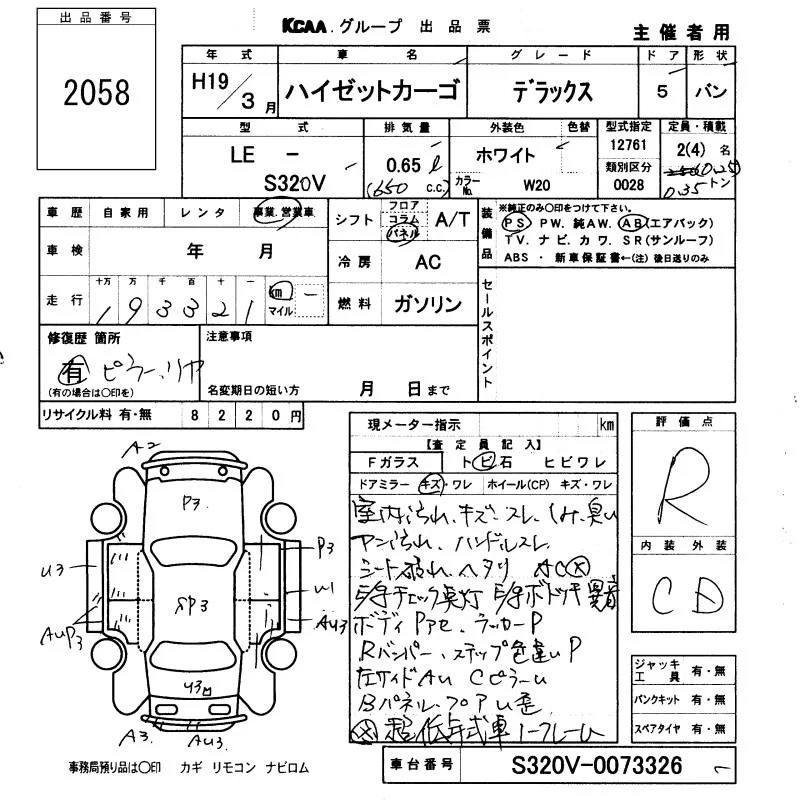 出品番号
2058
KCAA.グループ 出品票
主催者用
年式 車名 グレード ドア 形状
H19/3月 ハイゼットカーゴ デラックス 5 バン
型式 排気量 外装色 色替 型式指定 定員・積載
LE - S320V
0.65ℓ
(650 c.c.)
ホワイト
カラーNo. W20
12761
類別区分
0028
2(4)名
0.35トン
車歴 自家用 レンタ 事業.営業車
車検 年 月
走行 十万 万 千 百 十 一
193321 km マイル
シフト フロア コラム パネル A/T
冷房 AC
燃料 ガソリン
装備品
※純正のみ〇印をつけて下さい。
PS・PW.純AW.AB(エアバック)
TV.ナビ.カワ.SR(サンルーフ)
ABS・新車保証書←(注)後日送りのみ
セールスポイント
修復歴 箇所
有 ピラー、リヤ
(有の場合は〇印を)
注意事項
名変期日の短い方 月 日まで
リサイクル料 有・無 8220円
現メーター指示 km
【査定員記入】
Fガラス トビ石 ヒビワレ
ドアミラー キズ・ワレ ホイール(CP) キズ・ワレ
室内汚れ、キズ、スレ、シミ、臭い
ハンドルスレ
シート破れ、ヘタリ AC
チェック点灯
ボディ ラッカーP
Rバンパー、ステップ色違いP
左サイドAU CピラーU
Bパネル、フロアU歪
低年式車
評価点
R
内装 外装
C D
ジャッキ工具 有・無
パンクキット 有・無
スペアタイヤ 有・無
A2
P3
U3
P3
SP3
U1
AUP3
AU3
U3
A3.
AU3
事務局預り品は〇印 カギ リモコン ナビロム
車台番号 S320V-0073326